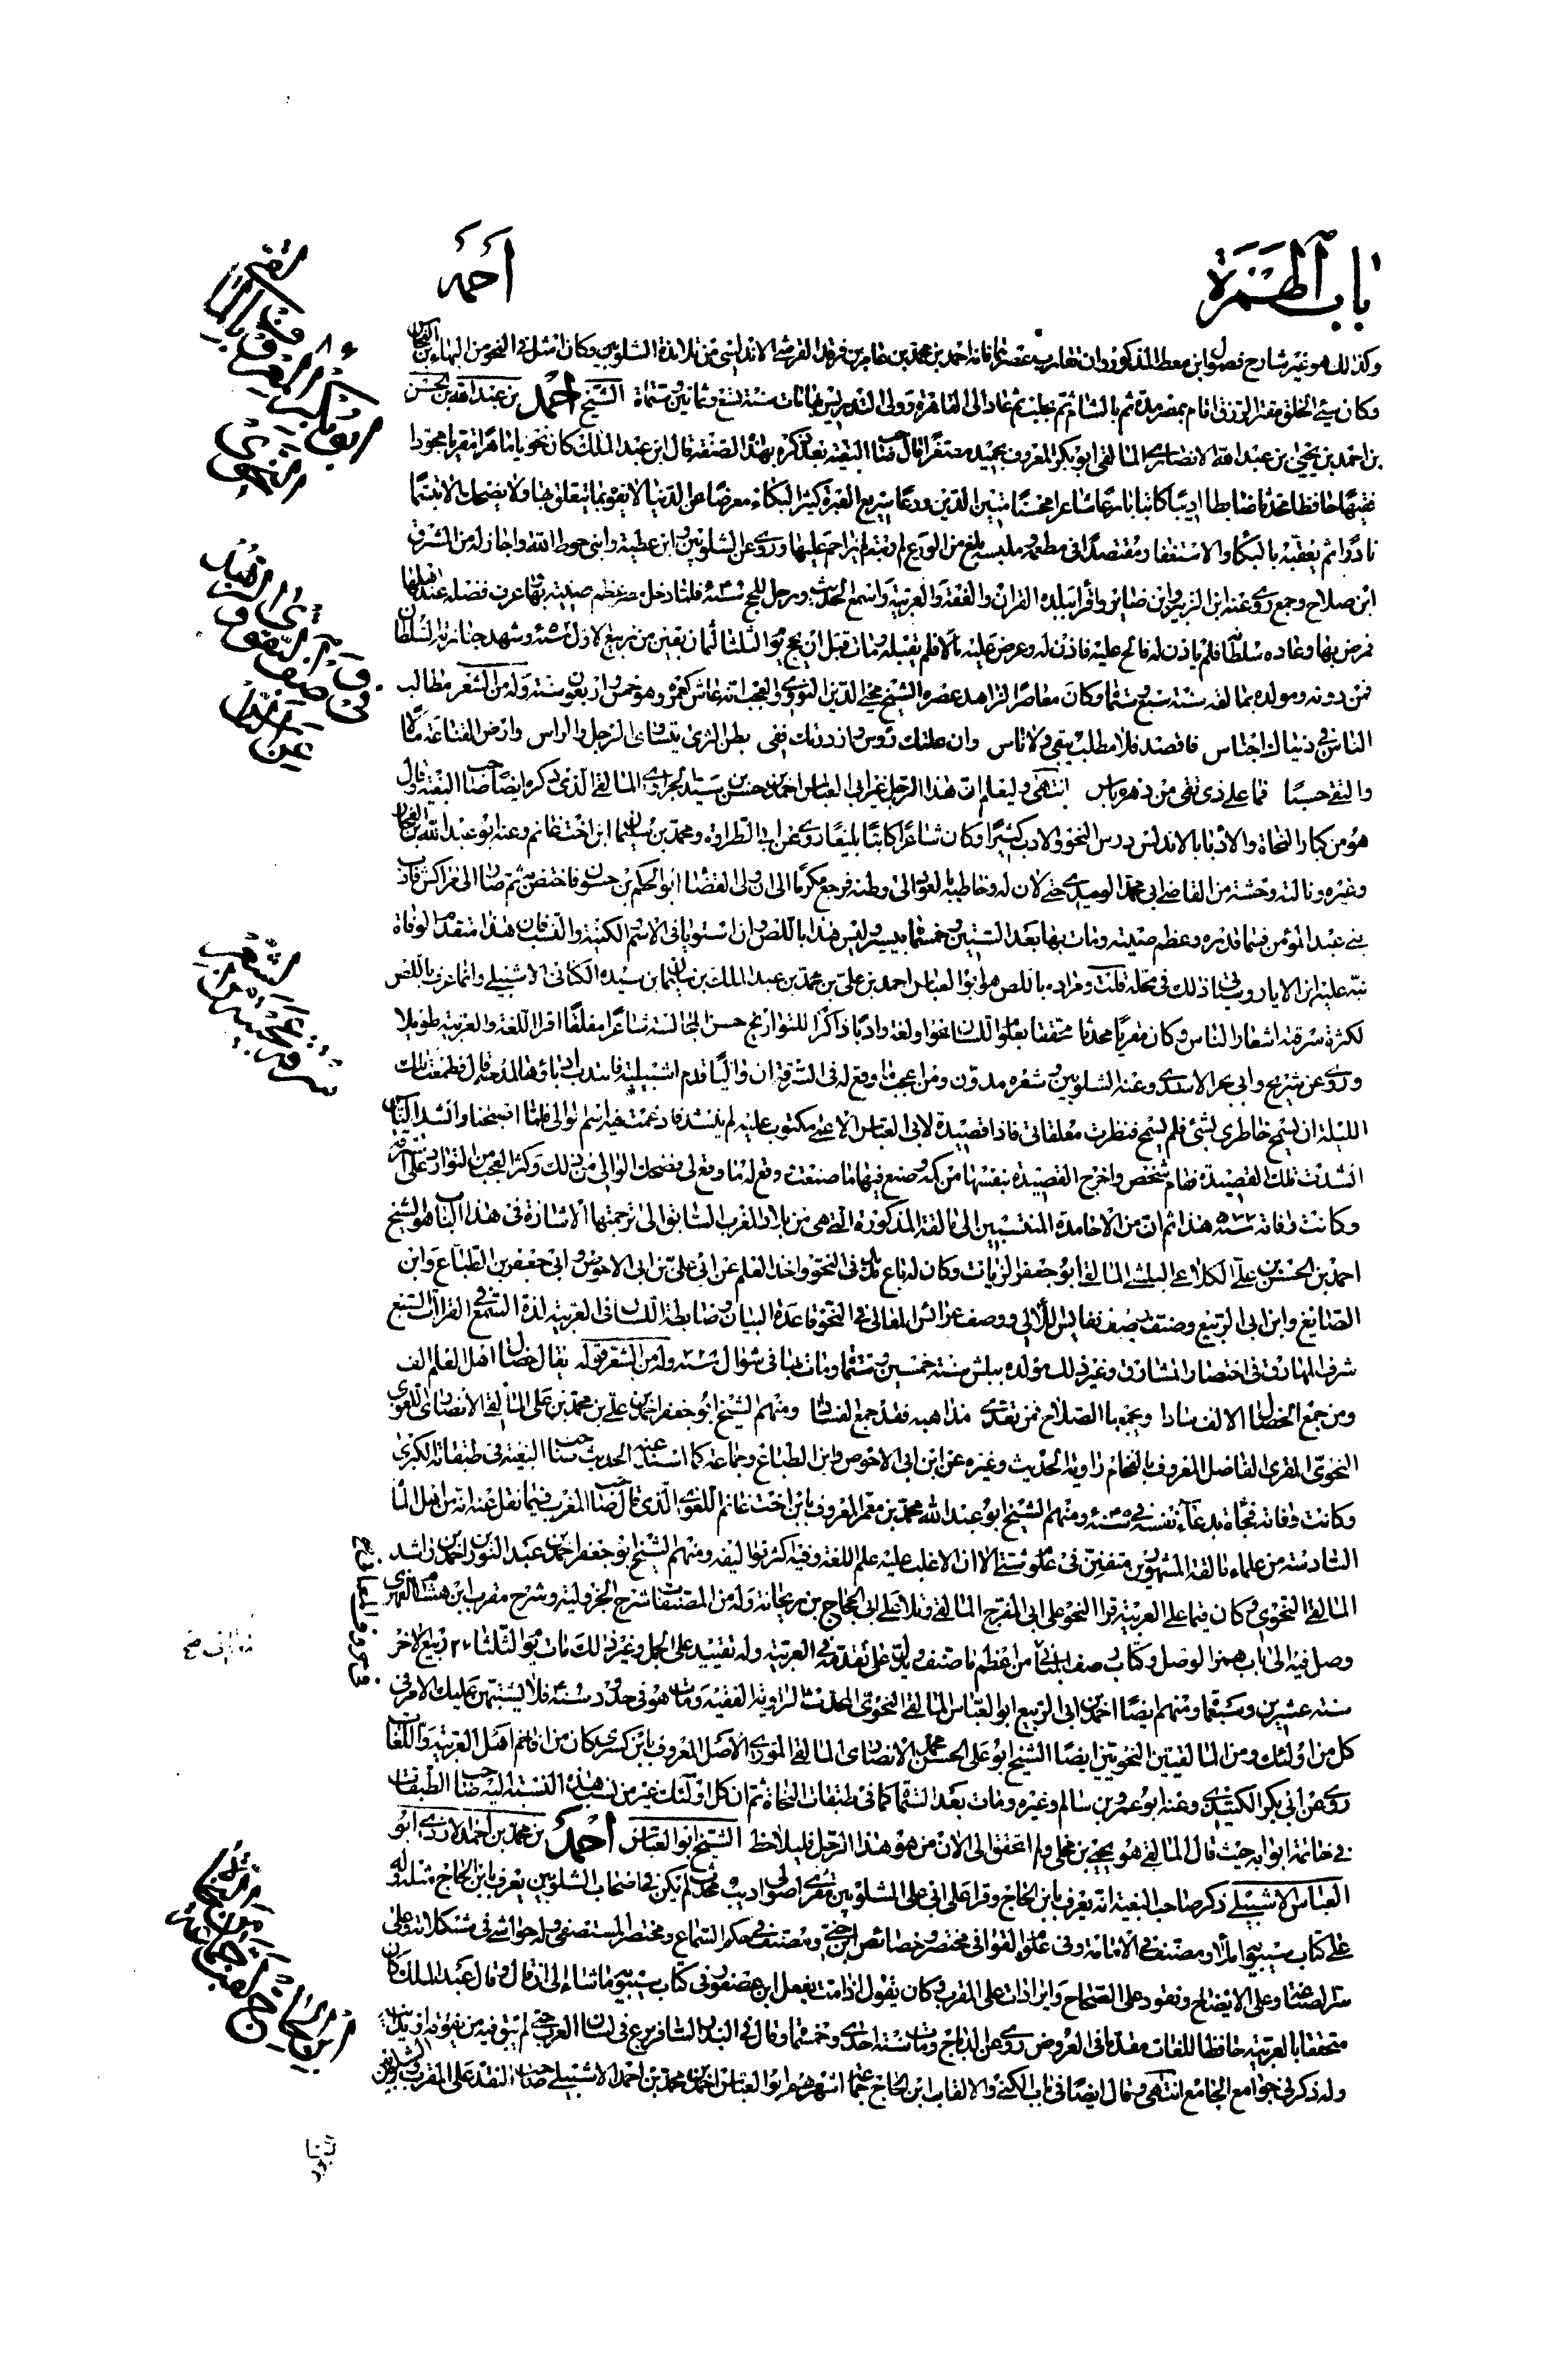 باب الهمزة
أحمد
وكذلك هو غير شارح فصول ابن معط المذكور وان تقارب عصراهما فانه احمد بن محمد بن عامر بن فرقد القرشي الاندلسي من تلامذة الشلوبين وكان امثل في النحو من البهاء بن النحاس
وكان سيئ الخلق مقتر الرزق اقام بمصر مدة ثم بالشام ثم بحلب ثم عاد الى القاهرة وولى التدريس بها مات سنة تسع وثمانين وستمائة الشيخ احمد بن عبد الله بن الحسن
بن احمد بن يحيى بن عبد الله الانصاري المالقي ابو بكر المعروف بحميد مصغرا قال صاحب البغية بعد ذكره بهذه الصفة قال ابن عبد الملك كان نحويا ماهرا مقريا مجودا
فقيها حافظا محدثا ضابطا اديبا كاتبا بارعا شاعرا محسنا متين الدين ورعا سريع العبرة كثير البكاء معرضا عن الدنيا لا يفوه بما يتعلق بها ولا يضحك الا تبسما
نادرا ثم يعقبه بالبكا والاستغفار مقتصدا في مطعمه وملبسه بلغ من الورع رتبة لم يزاحم عليها وروى عن الشلوبين وابن عطية وابني حوط الله واجاز له من المشرق
ابن صلاح وجمع روى عنه ابن الزبير وابن صابر واقرأ ببلده القران والفقه والعربية واسمع الحديث ورحل للحج فلما دخل مصر عظم صيته بها وعرف فضله عند اهلها
فمرض بها وعاده سلطانها فلم ياذن له فالح عليه فاذن له وعرض عليه مالا فلم يقبله ومات قبل ان يحج يوم الثلثا لثمان بقين من ربيع الاول وشهد جنازته السلطان
فمن دونه ومولده بمالقه سنة سبع وستمائة وكان معاصرا لزاهد عصره الشيخ محيي الدين النووي والعجب انه عاش كعمره وهو خمس واربعون سنة وله من الشعر مطالب
الناس في دنياك اجناس فاقصد فلا مطلب يبقى ولا ناس وان علتك رؤس وازدرتك ففي بطن الثرى يتساوى الرجل والراس وارض القناعة مالا
والتقى حسبا فما على ذي تقى من دهره باس انتهى وليعلم ان هذا الرجل غير ابي العباس احمد بن حسن بن سيد الجراوي المالقي الذي ذكره ايضا صاحب البغية وقال
هو من كبار النحاة والادبا بالاندلس درس النحو والادب كثيرا وكان شاعرا كاتبا بليغا روى عن ابن الطراوة ومحمد بن سليمان ابن اخت غانم وعنه ابو عبد الله بن الفخار
وغيره ونالته وحشة من القاضي ابي محمد الوحيدي حتى لان له وخاطبه بالعود الى وطنه فرجع مكرما الى ان ولى القضا ابو الحكم بن حسون فاختص به ثم صار الى مراكش فاد
بني عبد المؤمن فسما قدره وعظم صيته ومات بها بعد الستين وخمسمائة بيسير وليس هذا باللص وان استويا في الاسم والكنية والنسب فان هذا متقدم الوفاة
نبه عليه ابن الابار وسياتي ذلك في محله قلت ومراده باللص هو ابو العباس احمد بن علي بن محمد بن عبد الملك بن سليمان بن سيده الكناني الاشبيلي وانما عرف باللص
لكثرة سرقته اشعار الناس وكان مقريا محدثا متحققا بعلوم اللسان نحوا ولغة وادبا ذاكرا للتواريخ حسن المجالسة شاعرا مفلقا اقرا اللغة والعربية طويلا
وروى عن شريح وابي بحر الاسدي وعنه الشلوبين وشعره مدون ومن اعجب ما وقع له في السرقة ان واليا قدم اشبيلية فانتدب ادباؤها لمدحه قال فطمعت تلك
الليلة ان يسمح خاطري بشئ فلم يسمح فنظرت معلقاتي فاذا قصيدة لابي العباس الاعمى مكتوب عليه لم ينشد فادغمت فيها اسم الوالي فلما اصبحنا وانشد الناس
انشدت تلك القصيدة فقام شخص واخرج القصيدة بنفسها من كمه وصنع فيها ما صنعت وقع له ما وقع لي فضحك الوالي من ذلك وكثر العجب من التوارد على السرقة
وكانت وفاته سنة هذا ثم ان من الاحامدة المنتسبين الى مالقة المذكورة التي هي من بلاد المغرب السابق الى ترجمتها الاشارة في هذا الباب هو الشيخ
احمد بن الحسن بن علي الكلاعي البلشي المالقي ابو جعفر الزيات وكان له باع في النحو واخذ العلم عن ابي علي بن ابي الاحوص وابي جعفر بن الطباع وابن
الصايغ وابن ابي الربيع وصنف رصف نفايس اللآلي ووصف عرائس المعالي في النحو قاعدة البيان وضابطة اللسان في العربية لذة السمع في القراآت السبع
شرف المهارق في اختصار المشارق وغير ذلك مولده ببلش سنة خمسين وستمائة ومات بها في شوال وله من الشعر قوله يقال خصال اهل العلم الف
ومن جمع الخصال الالف سادا ويجمعها الصلاح فمن تعدى مذاهبه فقد جمع الفسادا ومنهم الشيخ ابو جعفر احمد بن علي بن محمد بن علي المالقي الانصاري اللغوي
النحوي المقري الفاضل المعروف بالفحام راوية الحديث وغيره عن ابن ابي الاحوص وابن الطباع وجماعة كما اسند عنه الحديث صاحب البغية في طبقاته الكبرى
وكانت وفاته فجأة بدعاء نفسه في سنة ومنهم الشيخ ابو عبد الله محمد بن معمر المعروف بابن اخت غانم اللغوي الذي قال صاحب المغرب فيما نقل عنه انه من اهل الما
السادسة من علماء مالقة المشهورين متفنن في علوم شتى الا ان الاغلب عليه علم اللغة وفيه اكثر تواليفه ومنهم الشيخ ابو جعفر احمد بن عبد النور بن احمد بن راشد
المالقي النحوي وكان قيما على العربية قرا النحو على ابي المفرج المالقي وتلا على ابي الحجاج بن ريحانة وله من المصنفات شرح الجزولية وشرح مقرب ابن هشام الفهري
وصل فيه الى باب همز الوصل وكتاب رصف المباني من اعظم ما صنف ويدل على تقدمه في العربية وله تقييد على الجمل وغير ذلك مات يوم الثلثا ٢٧ ربيع الاخر
سنة عشرين وسبعمائة ومنهم ايضا احمد بن ابي الربيع ابو العباس المالقي النحوي المحدث الراوية الفقيه ومات هو في حدود سنة فلا يشتبهن عليك الامر في
كل من اولئك ومن المالقيين النحويين ايضا الشيخ ابو علي الحسن بن محمد الانصاري المالقي الموري الاصل المعروف بابن كسرى كان من افاخم اهل العربية واللغات
روى عن ابي بكر الكتندي وعنه ابو عمرو بن سالم وغيره ومات بعد الستمائة كما في طبقات النحاة ثم ان كل اولئك غير من نسب هذه النسبة اليه صاحب الطبقات
في خاتمة ابوابه حيث قال المالقي هو يحيى بن علي ولم اتحقق الى الان من هو هذا الرجل فليلاحظ الشيخ ابو العباس احمد بن محمد بن احمد الازدي ابو
العباس الاشبيلي ذكر صاحب البغية انه يعرف بابن الحاج وقرا على ابي علي الشلوبين مقري اصولي اديب محدث لم يكن في اصحاب الشلوبين يعرف بابن الحاج مثله وله
على كتاب سيبويه املاء ومصنف في الامامة وفي علوم القوافي ومختصر خصائص ابن جني ومصنف في حكم السماع ومختصر المستصفى وله حواش في مشكلاته وعلى
سر الصناعة وعلى الايضاح ونقود على الصحاح وايرادات على المقرب وكان يقول اذا مت يفعل ابن عصفور في كتاب سيبويه ما شاء الى ان قال وقال عبد الملك كان
متحققا بالعربية حافظا للغات مقدما في العروض روى عن الدباج ومات سنة احدى وخمسمائة وقال في البدر السافر برع في لسان العرب حتى لم يبق فيه من يفوقه او يدانيه
وله ذكر في جوامع الجامع انتهى وقال ايضا في باب الكنى والالقاب ابن الحاج جماعة اشهرهم ابو العباس احمد بن محمد بن احمد الاشبيلي صاحب النقد على المقرب